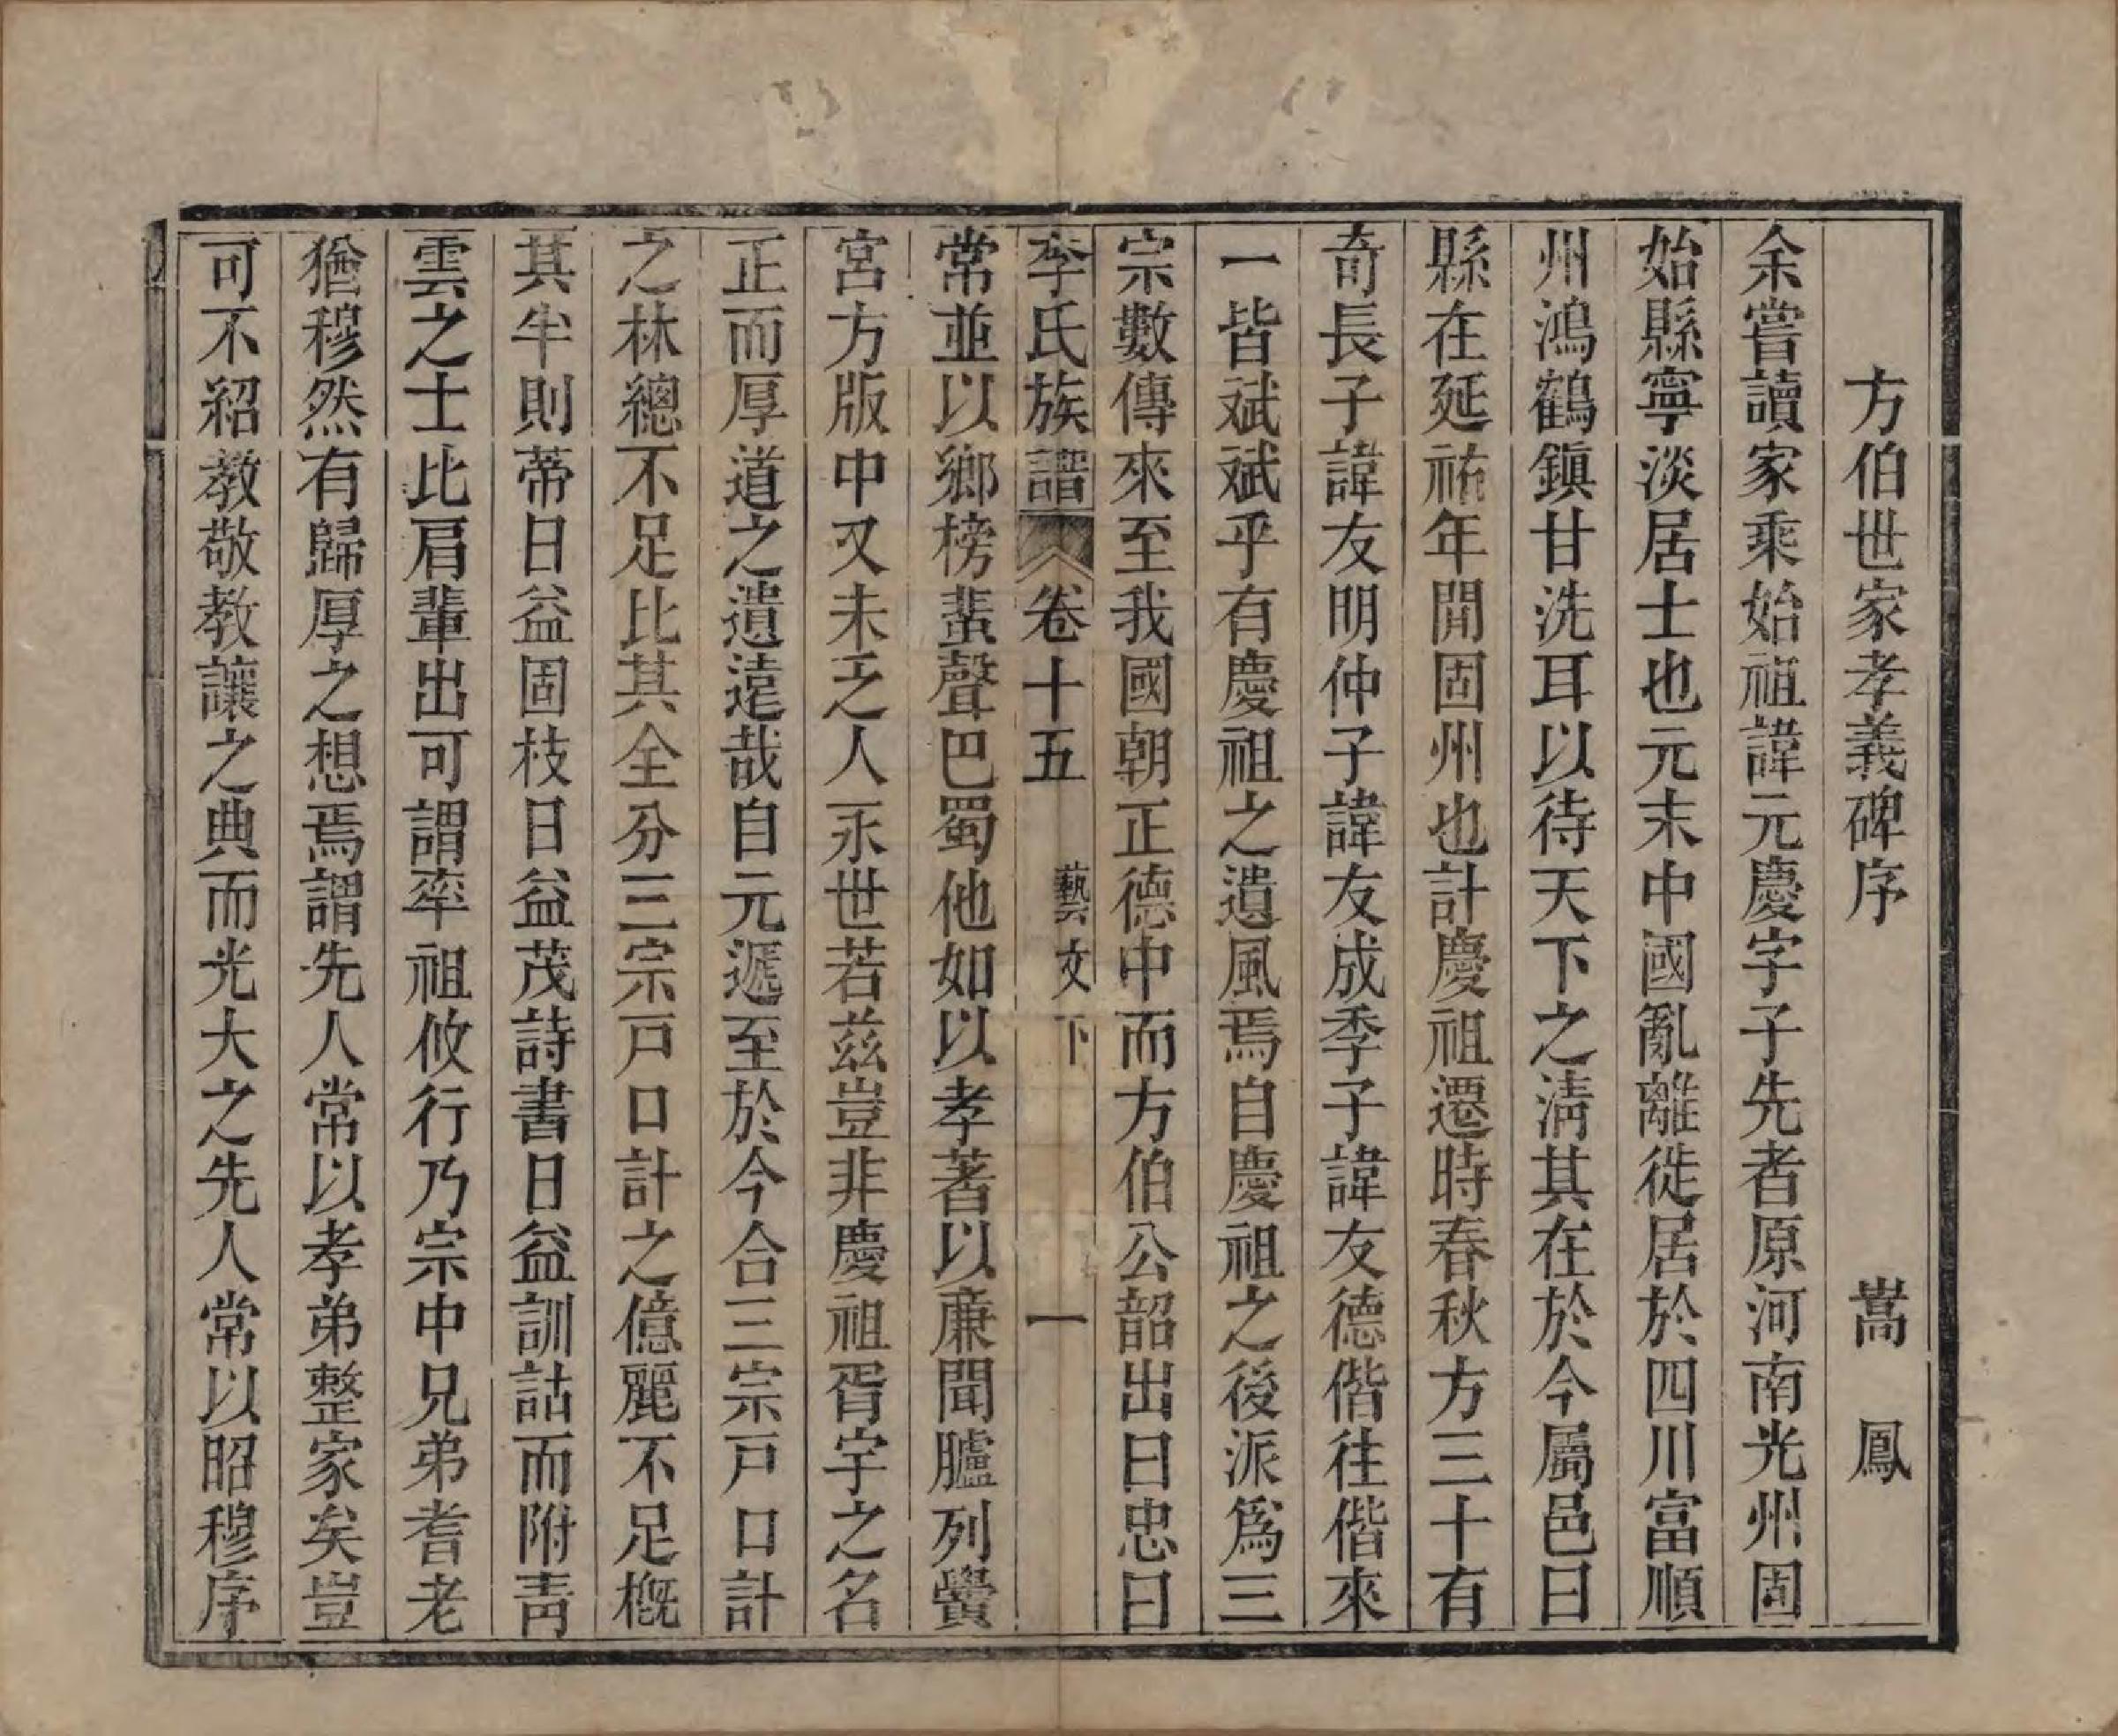 方伯世家孝義碑序 嵩鳳
余嘗讀家乘始祖諱元慶字子先者原河南光州固
始縣寧淡居士也元末中國亂離徙居於四川富順
州鴻鶴鎮甘洗耳以待天下之淸其在於今屬邑曰
縣在延祐年間固州也計慶祖遷時春秋方三十有
奇長子諱友明仲子諱友成季子諱友德偕往偕來
一皆斌斌乎有慶祖之遺風焉自慶祖之後派爲三
宗數傳來至我國朝正德中而方伯公韶出曰忠曰
李氏族譜 卷十五 藝文下 一
常並以鄉榜蜚聲巴蜀他如以孝著以廉聞臚列黌
宮方版中又未乏人永世若茲豈非慶祖胥宇之名
正而厚道之遺遠哉自元遞至於今合三宗戸口計
之林總不足比其全分三宗戸口計之億麗不足概
其半則蒂日益固枝日益茂詩書日益訓詁而附靑
雲之士比肩輩出可謂率祖攸行乃宗中兄弟耆老
猶穆然有歸厚之想焉謂先人常以孝弟整家矣豈
可不紹教敬教讓之典而光大之先人常以昭穆序